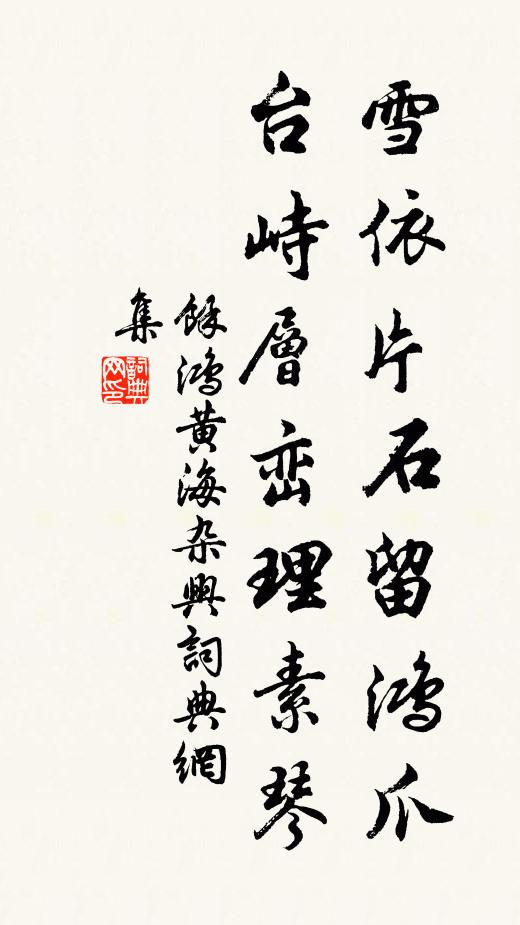 雪依片石留鴻爪
台峙層峦理素琴
緣鴻黄海杂興詞典網
集
詞典網印